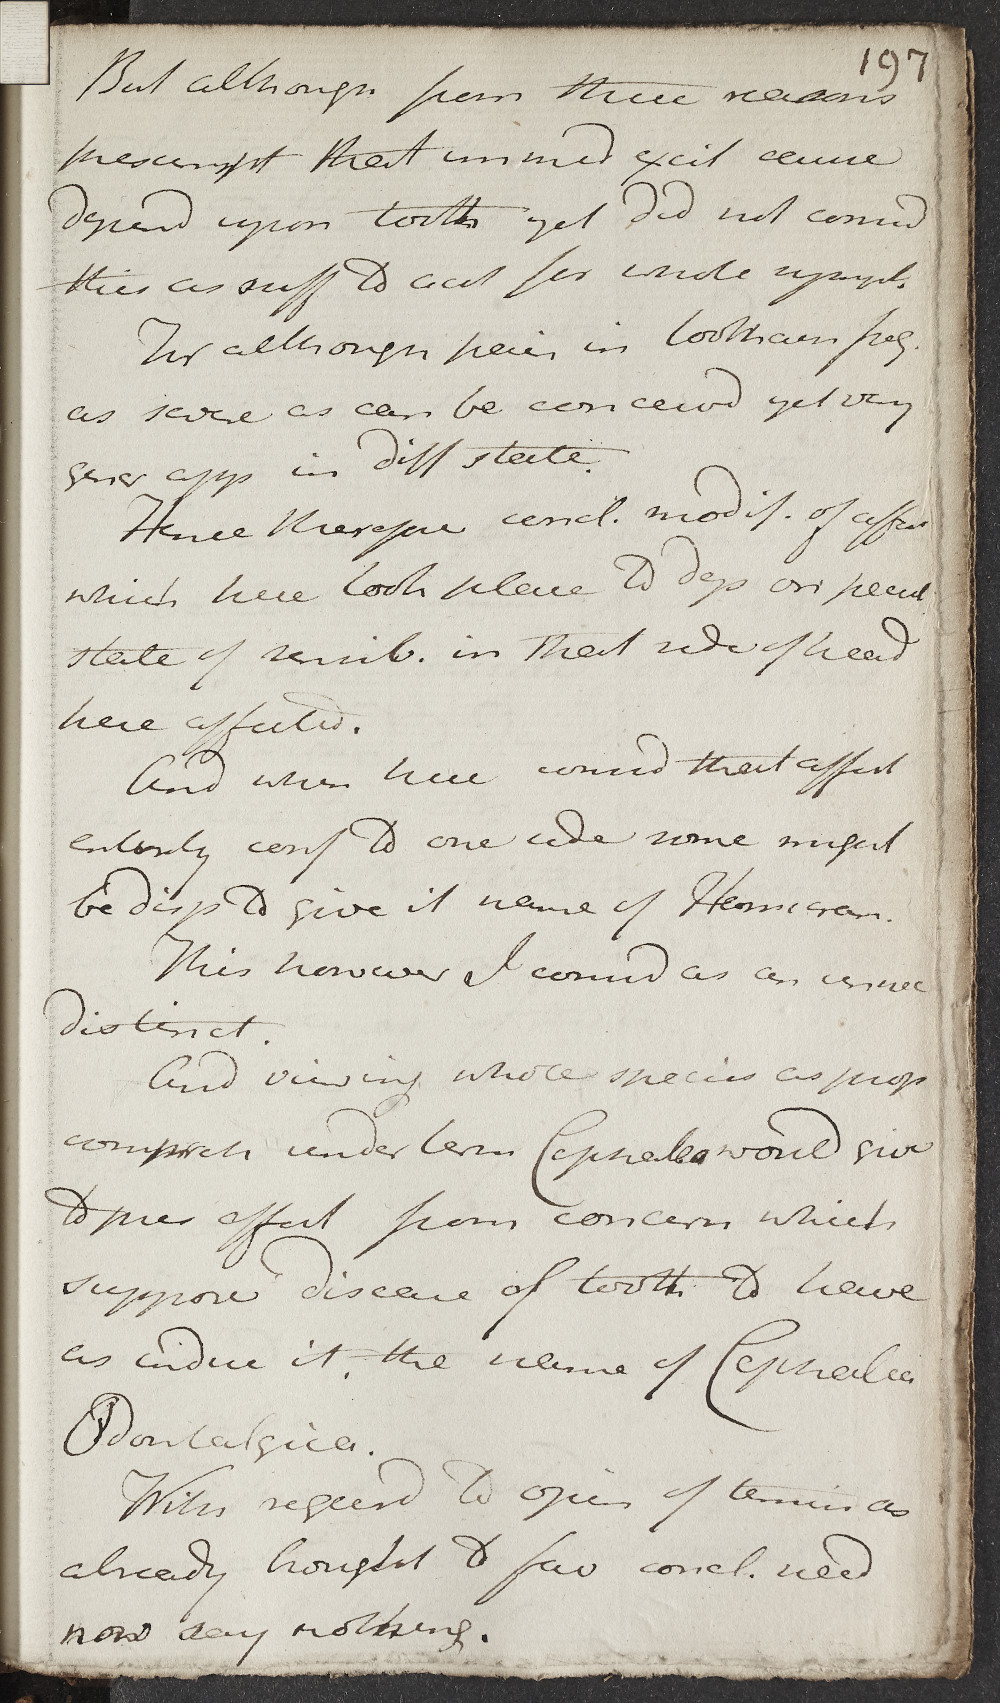 197
But although from these reasons
presumpt that immed excit cause
depend upon tooth yet did not consid
this as suff to acct for whole sympt.
For although pain in toothach freq.
as severe as can be conceivd yet very
gener app in diff state.
Hence therefore concl. modif. of affect
which here took place to dep on pecul
state of sensib. in that side of head
here affected.
And when here consid that affect
entirely conf to one side some might
be disp to give it name of Hemicran.
This however I consid as an unnec
distinct.
And viewing whole species as prop
compreh under term Cephalea would give
to pres affect from concern which
suppose disease of tooth to have
as induc it, the name of Cephalea
Odontalgica.
With regard to opin of termin as
already brought to fav concl. need
now say nothing.